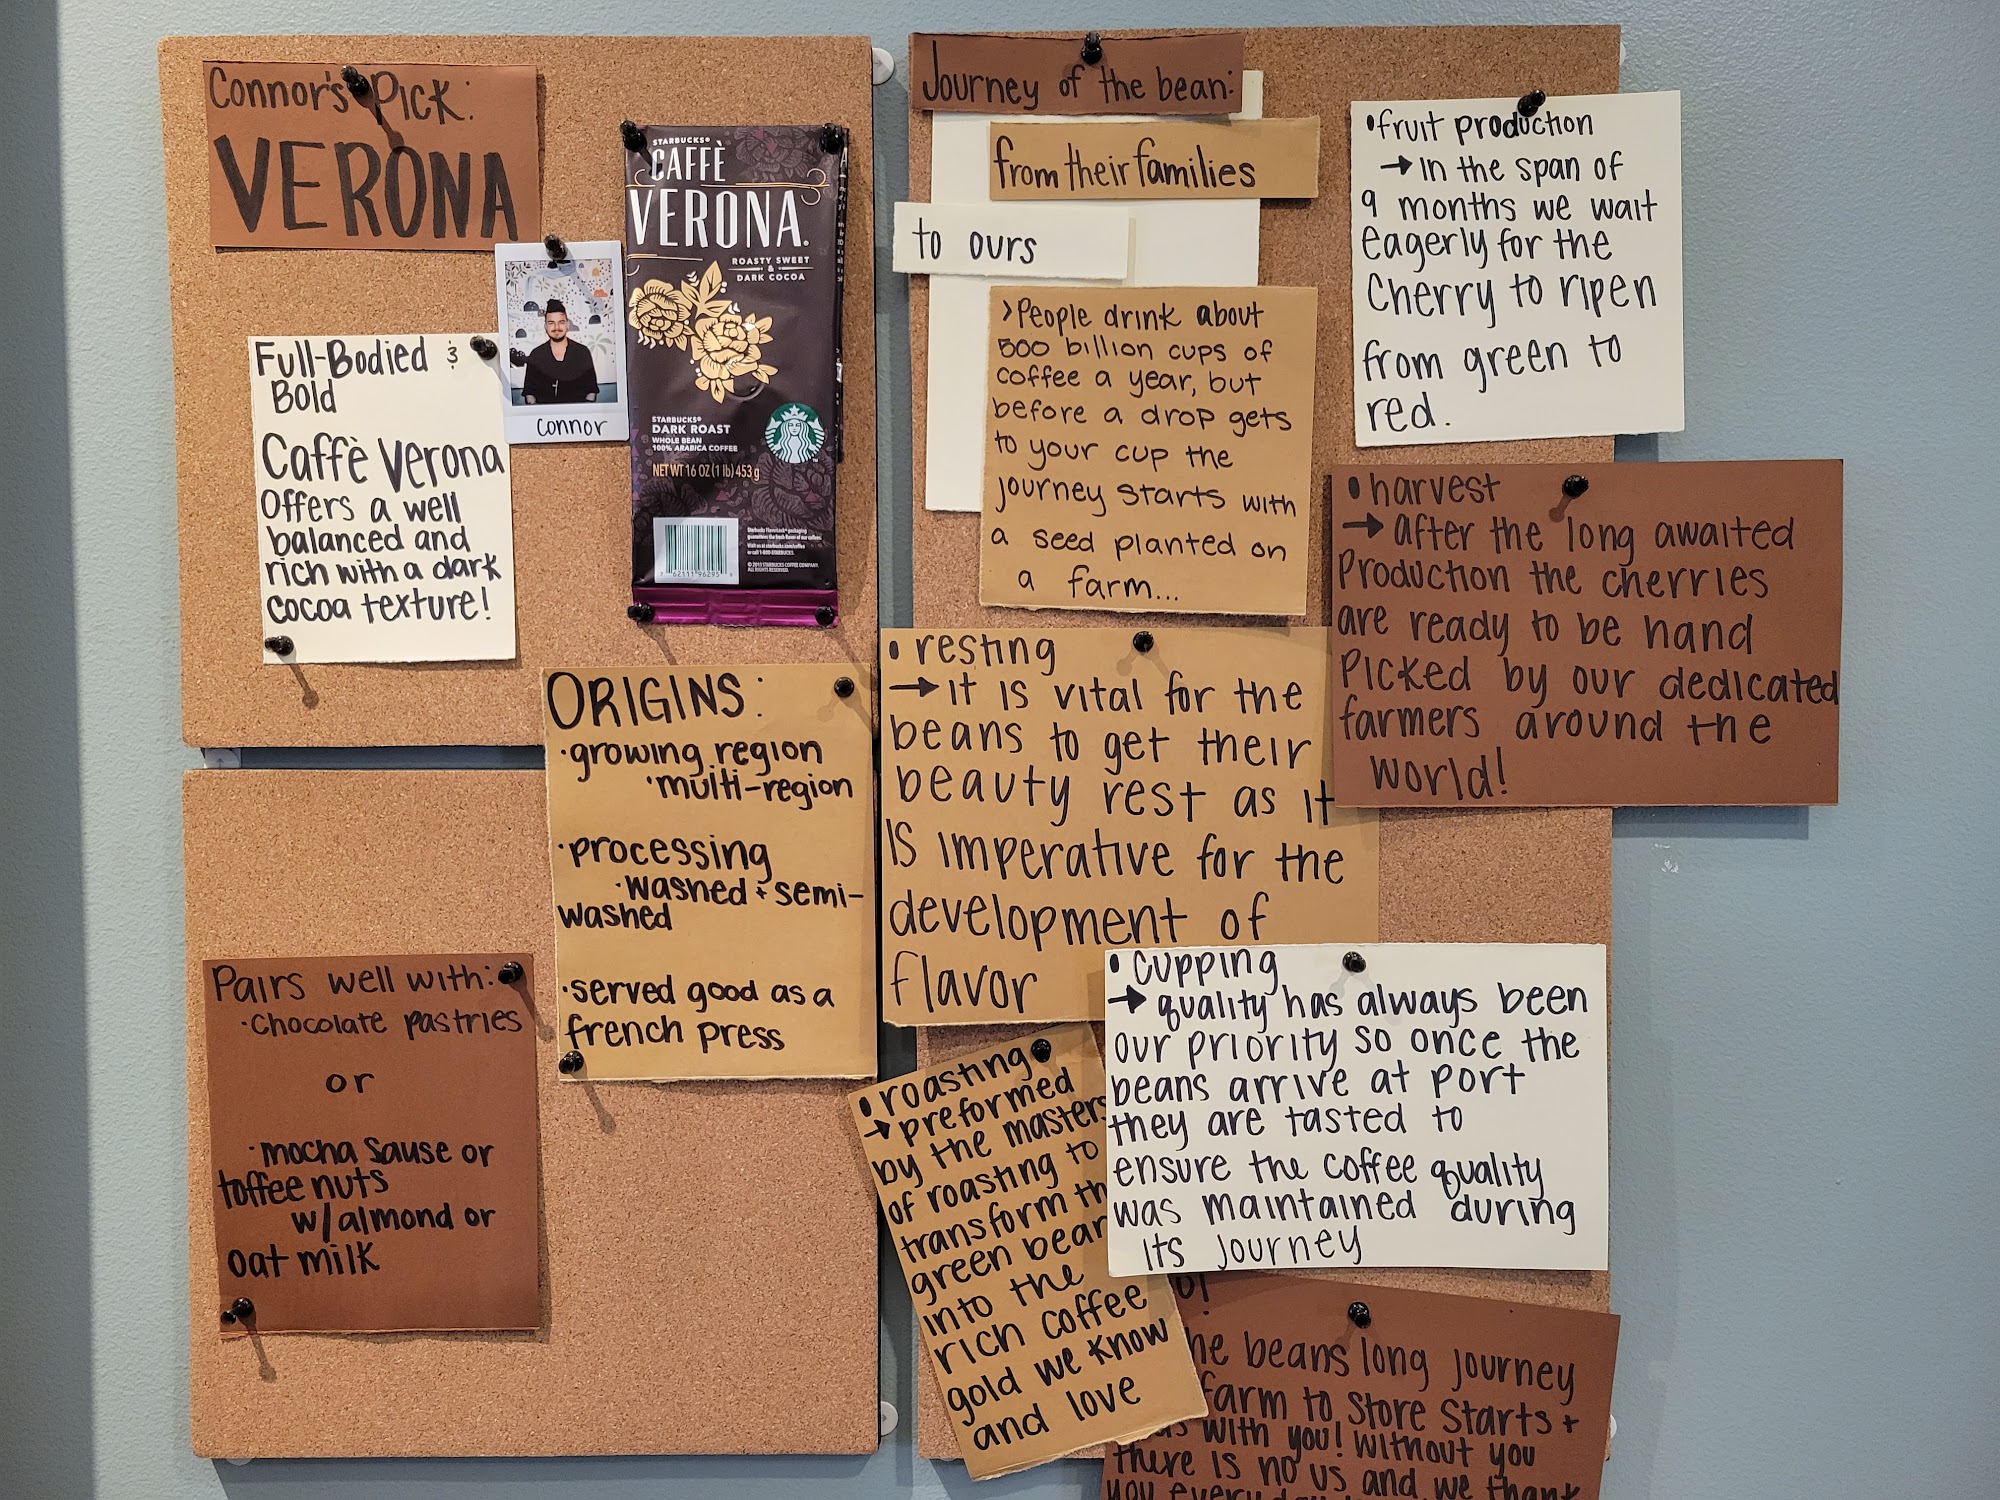 Connor's Pick:
VERONA
Full-Bodied &
Bold
Caffè Verona
Offers a well
balanced and
rich with a dark
cocoa texture!
connor
STARBUCKS®
CAFFÈ
VERONA.
ROASTY SWEET
&
DARK COCOA
STARBUCKS®
DARK ROAST
WHOLE BEAN
100% ARABICA COFFEE
NET WT 16 OZ (1 lb) 453 g
ORIGINS:
·growing region
·multi-region
·processing
·washed + semi-
washed
·served good as a
french press
Pairs well with:
·chocolate pastries
or
·mocha sause or
toffee nuts
w/almond or
oat milk
Journey of the bean:
from their families
to ours
>People drink about
500 billion cups of
coffee a year, but
before a drop gets
to your cup the
journey starts with
a seed planted on
a farm...
•fruit production
→ In the span of
9 months we wait
eagerly for the
Cherry to ripen
from green to
red.
•harvest
→ after the long awaited
Production the cherries
are ready to be hand
Picked by our dedicated
farmers around the
world!
•resting
→ it is vital for the
beans to get their
beauty rest as it
is imperative for the
development of
flavor
•cupping
→ quality has always been
our priority so once the
beans arrive at port
they are tasted to
ensure the coffee quality
was maintained during
its journey
•roasting
→ preformed
by the masters
of roasting to
transform th
green bean
into the
rich coffee
gold we know
and love
he beans long journey
farm to store starts +
with you! without you
there is no us and we thank
you every day